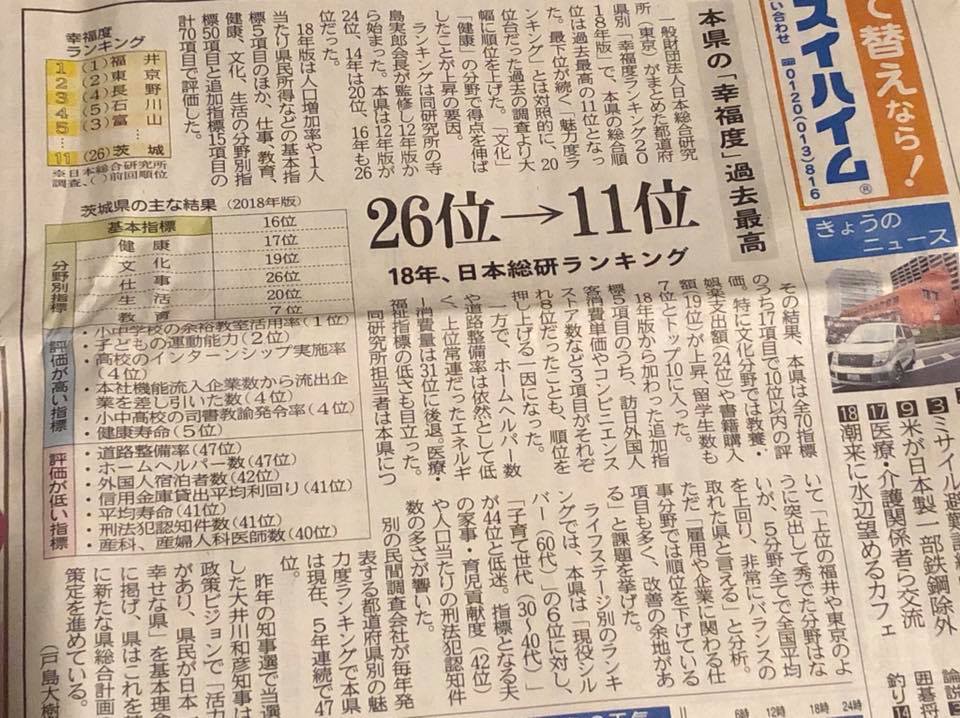 て替えなら！
スイハイム®
い合わせ 0120(013)816
きょうの
ニュース
3 ミサイル避難
9 米が日本製一部鉄鋼除外
17 医療・介護関係者ら交流
18 潮来に水辺望めるカフェ
論説
囲碁将
釣り
14
6時 12時 18時 24時
本県の「幸福度」過去最高
26位→11位
18年、日本総研ランキング
一般財団法人日本総合研究
所（東京）がまとめた都道府
県別「幸福度ランキング20
18年版」で、本県の総合順
位は過去最高の11位となっ
た。最下位が続く「魅力度ラ
ンキング」とは対照的に、20
位台だった過去の調査より大
幅に順位を上げた。「文化」
「健康」の分野で得点を伸ば
したことが上昇の要因。
ランキングは同研究所の寺
島実郎会長が監修し12年版か
ら始まった。本県は12年版が
24位、14年は20位、16年も26
位だった。
18年版は人口増加率や１人
当たり県民所得などの基本指
標５項目のほか、仕事、教育、
健康、文化、生活の分野別指
標50項目と追加指標15項目の
計70項目で評価した。
幸福度
ランキング
1 (1) 福井
2 (2) 東京
3 (4) 長野
4 (5) 石川
5 (3) 富山
…
11 (26) 茨城
※日本総合研究所
調査、( )前回順位
茨城県の主な結果（2018年版）
基本指標 16位
分野別指標
健康 17位
文化 19位
仕事 26位
生活 20位
教育 7位
評価が高い指標
・小中学校の余裕教室活用率（1位）
・子どもの運動能力（2位）
・高校のインターンシップ実施率
（4位）
・本社機能流入企業数から流出企
業を差し引いた数（4位）
・小中高校の司書教諭発令率（4位）
・健康寿命（5位）
評価が低い指標
・道路整備率（47位）
・ホームヘルパー数（47位）
・外国人宿泊者数（42位）
・信用金庫貸出平均利回り（41位）
・平均寿命（41位）
・刑法犯認知件数（41位）
・産科、産婦人科医師数（40位）
その結果、本県は全70指標
のうち17項目で10位以内の評
価。特に文化分野では教養・
娯楽支出額（24位）や書籍購入
額（19位）が上昇、留学生数も
７位とトップ10に入った。
18年版から加わった追加指
標５項目のうち、訪日外国人
客消費単価やコンビニエンス
ストア数など３項目がそれぞ
れ８位だったことも、順位を
押し上げる一因になった。
一方で、ホームヘルパー数
や道路整備率は依然として低
く、上位常連だったエネルギ
ー消費量は31位に後退。医療・
福祉指標の低さも目立った。
同研究所担当者は本県につ
いて「上位の福井や東京のよ
うに突出して秀でた分野はな
いが、５分野全てで全国平均
を上回り、非常にバランスの
取れた県と言える」と分析。
ただ「雇用や企業に関わる仕
事分野では順位を下げている
項目も多く、改善の余地があ
る」と課題を挙げた。
ライフステージ別のランキ
ングでは、本県は「現役シル
バー（60代）」の６位に対し、
「子育て世代（30～40代）」
が44位と低迷。指標となる夫
の家事・育児貢献度（42位）
や人口当たりの刑法犯認知件
数の多さが響いた。
別の民間調査会社が毎年発
表する都道府県別の魅
力度ランキングで本県
は現在、５年連続で47
位。
昨年の知事選で当選
した大井川和彦知事は
政策ビジョンで「活力
があり、県民が日本一
幸せな県」を基本理念
に掲げ、県はこれを基
に新たな県総合計画の
策定を進めている。
（戸島大樹